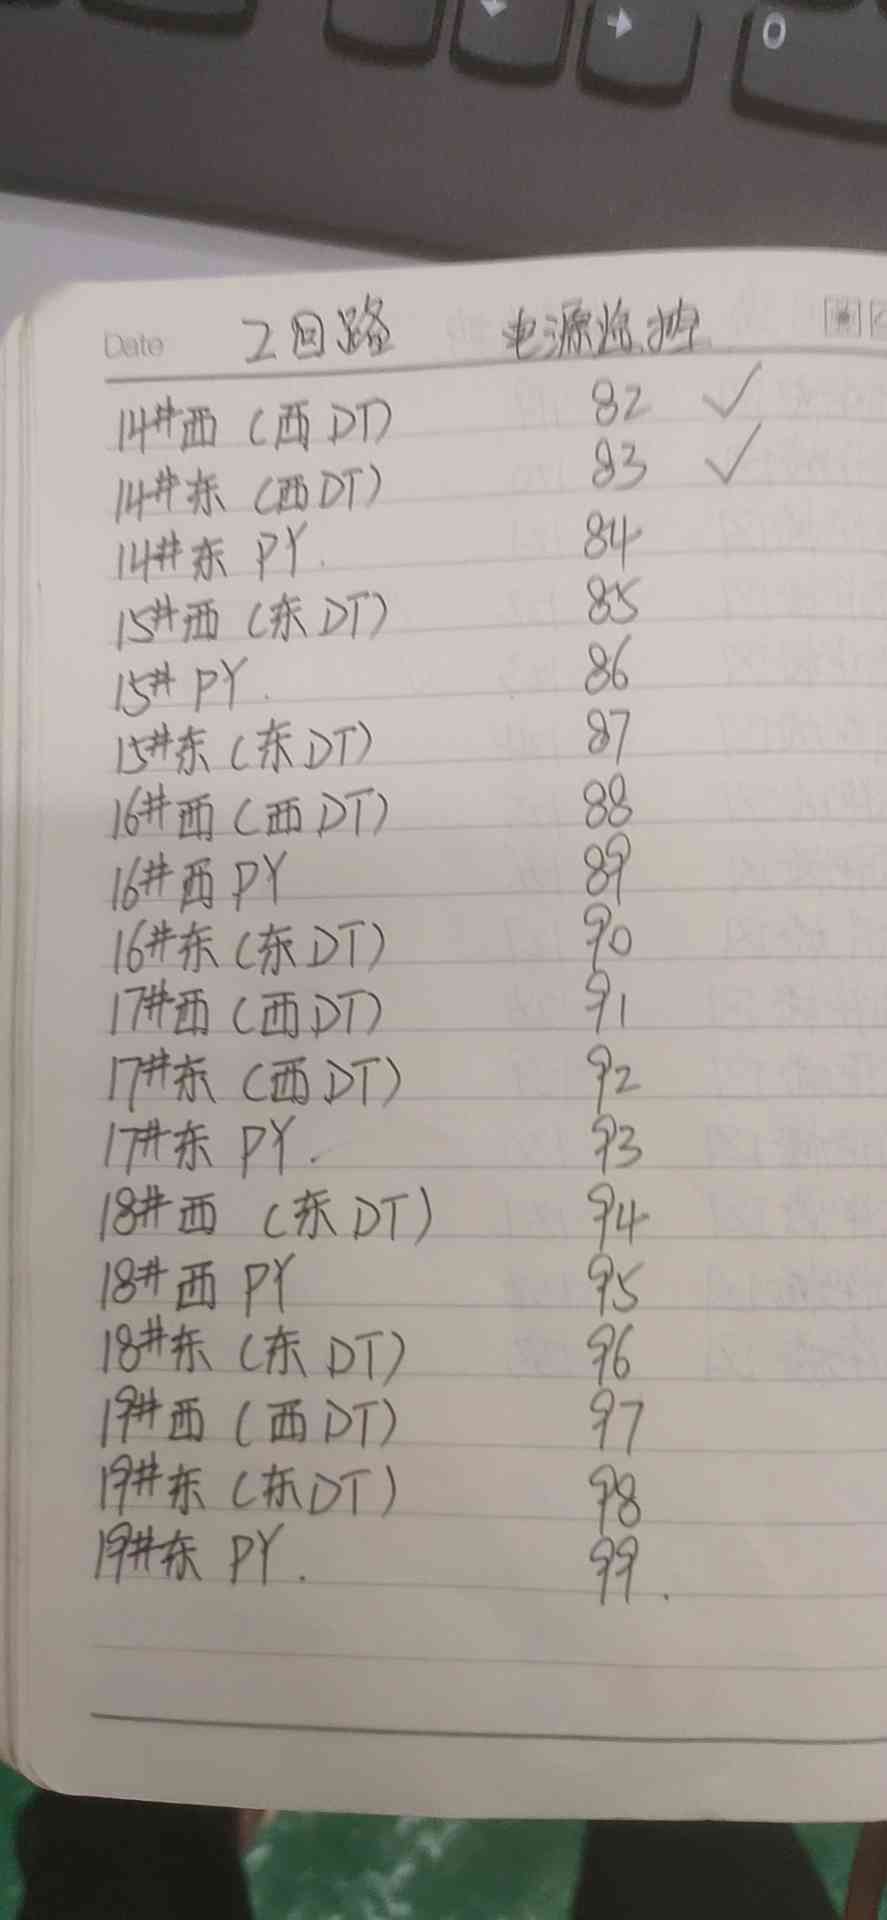 0
Date 2回路 电源监控
14#西（西DT） 82 ✓
14#东（西DT） 83 ✓
14#东 PY. 84
15#西（东DT） 85
15# PY. 86
15#东（东DT） 87
16#西（西DT） 88
16#西 PY 89
16#东（东DT） 90
17#西（西DT） 91
17#东（西DT） 92
17#东 PY. 93
18#西（东DT） 94
18#西 PY 95
18#东（东DT） 96
19#西（西DT） 97
19#东（东DT） 98
19#东 PY. 99.